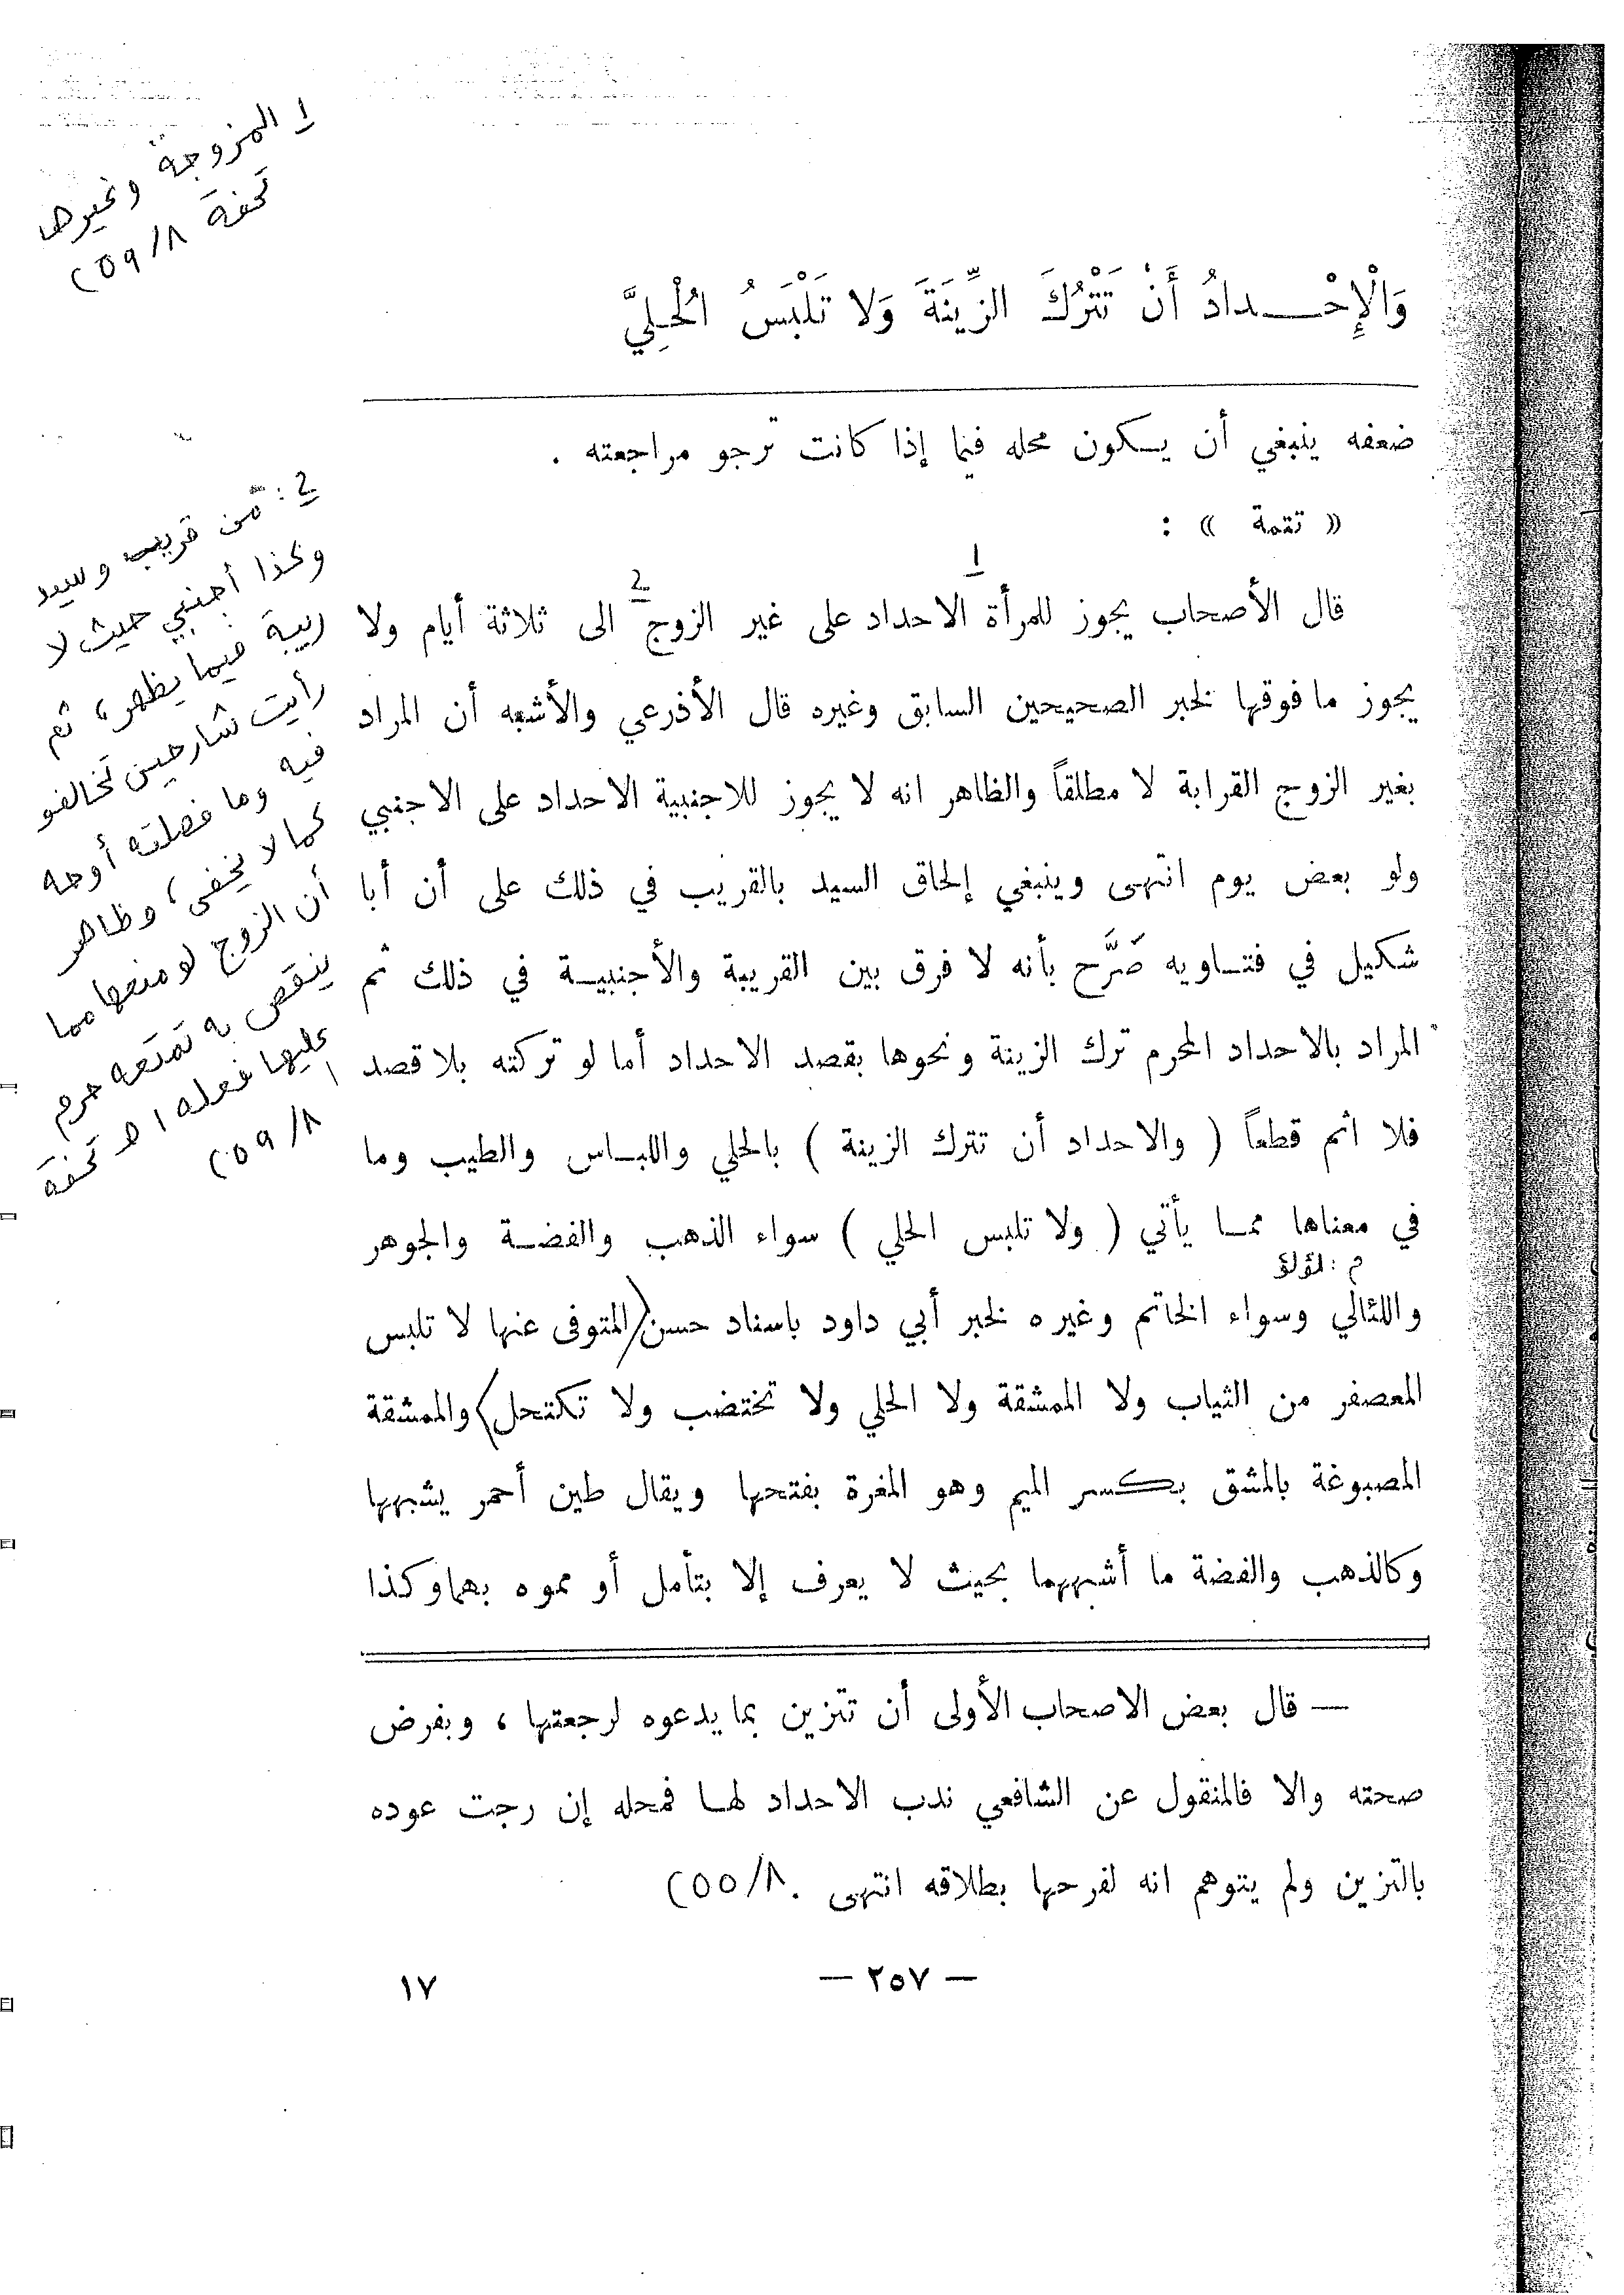 وَالْإِحْـــدادُ أَنْ تَتْرُكَ الزِّينَةَ وَلا تَلْبَسُ الْحُلِيَّ
ضعفه ينبغي أن يكون محله فيما إذا كانت ترجو مراجعته .
« تتمة » :
1
2
قال الأصحاب يجوز للمرأة الاحداد على غير الزوج الى ثلاثة أيام ولا
يجوز ما فوقها لخبر الصحيحين السابق وغيره قال الأذرعي والأشبه أن المراد
بغير الزوج القرابة لا مطلقاً والظاهر انه لا يجوز للاجنبية الاحداد على الاجنبي
ولو بعض يوم انتهى وينبغي إلحاق السيد بالقريب في ذلك على أن أبا
شكيل في فتـاويه صَرَّح بأنه لا فرق بين القريبة والأجنبيـة في ذلك ثم
المراد بالاحداد المحرم ترك الزينة ونحوها بقصد الاحداد أما لو تركته بلا قصد
فلا اثم قطعاً ( والاحداد أن تترك الزينة ) بالحلي واللبـاس والطيب وما
في معناها ممـا يأتي ( ولا تلبس الحلي ) سواء الذهب والفضـة والجوهر
م : لؤلؤ
واللئالي وسواء الخاتم وغيره لخبر أبي داود باسناد حسن (المتوفى عنها لا تلبس
المعصفر من الثياب ولا الممشقة ولا الحلي ولا تختضب ولا تكتحل) والممشقة
المصبوغة بالمشق بكسر الميم وهو المغرة بفتحها ويقال طين أحمر يشبهها
وكالذهب والفضة ما أشبههما بحيث لا يعرف إلا بتأمل أو مموه بهما وكذا
— قال بعض الاصحاب الأولى أن تتزين بما يدعوه لرجعتها ، وبفرض
صحته والا فالمنقول عن الشافعي ندب الاحداد لهـا فمحله إن رجت عوده
بالتزين ولم يتوهم انه لفرحها بطلاقه انتهى . ٨/٥٥)
— ٢٥٧ —
١٧
1 المزوجة وغيرها
تحفة ٨/٥٩)
2 : من قريب وسيد
وكذا أجنبي حيث لا
ريبة فيما يظهر، ثم
رأيت شارحين تخالفو
فيه وما فصلته أوجه
كما لا يخفى، وظاهر
أن الزوج لو منعها مما
ينقص به تمتعه حرم
عليها فعله اهـ تحفة
٨/٥٩)